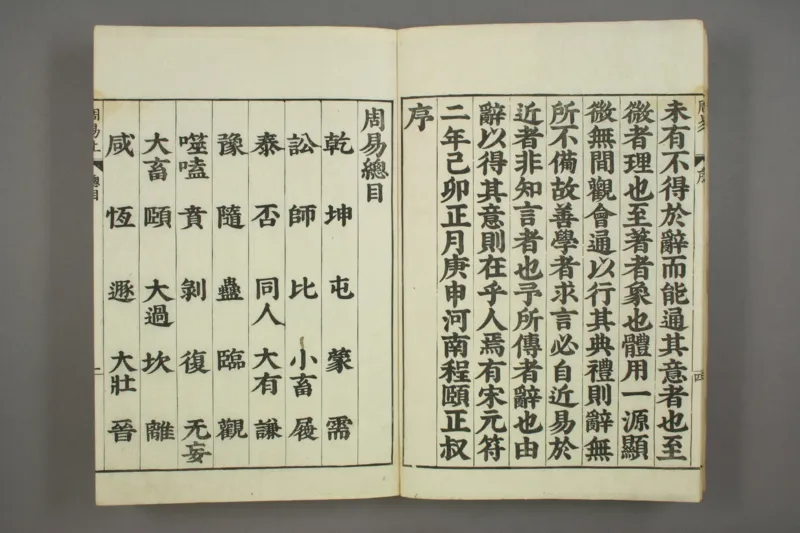 未有不得於辭而能通其意者也至
微者理也至著者象也體用一源顯
微無間觀會通以行其典禮則辭無
所不備故善學者求言必自近易於
近者非知言者也予所傳者辭也由
辭以得其意則在乎人焉有宋元符
二年己卯正月庚申河南程頤正叔
序
周易 序
四
周易總目
乾 坤 屯 蒙 需
訟 師 比 小畜 履
泰 否 同人 大有 謙
豫 隨 蠱 臨 觀
噬嗑 賁 剝 復 无妄
大畜 頤 大過 坎 離
咸 恆 遯 大壯 晉
周易上 總目